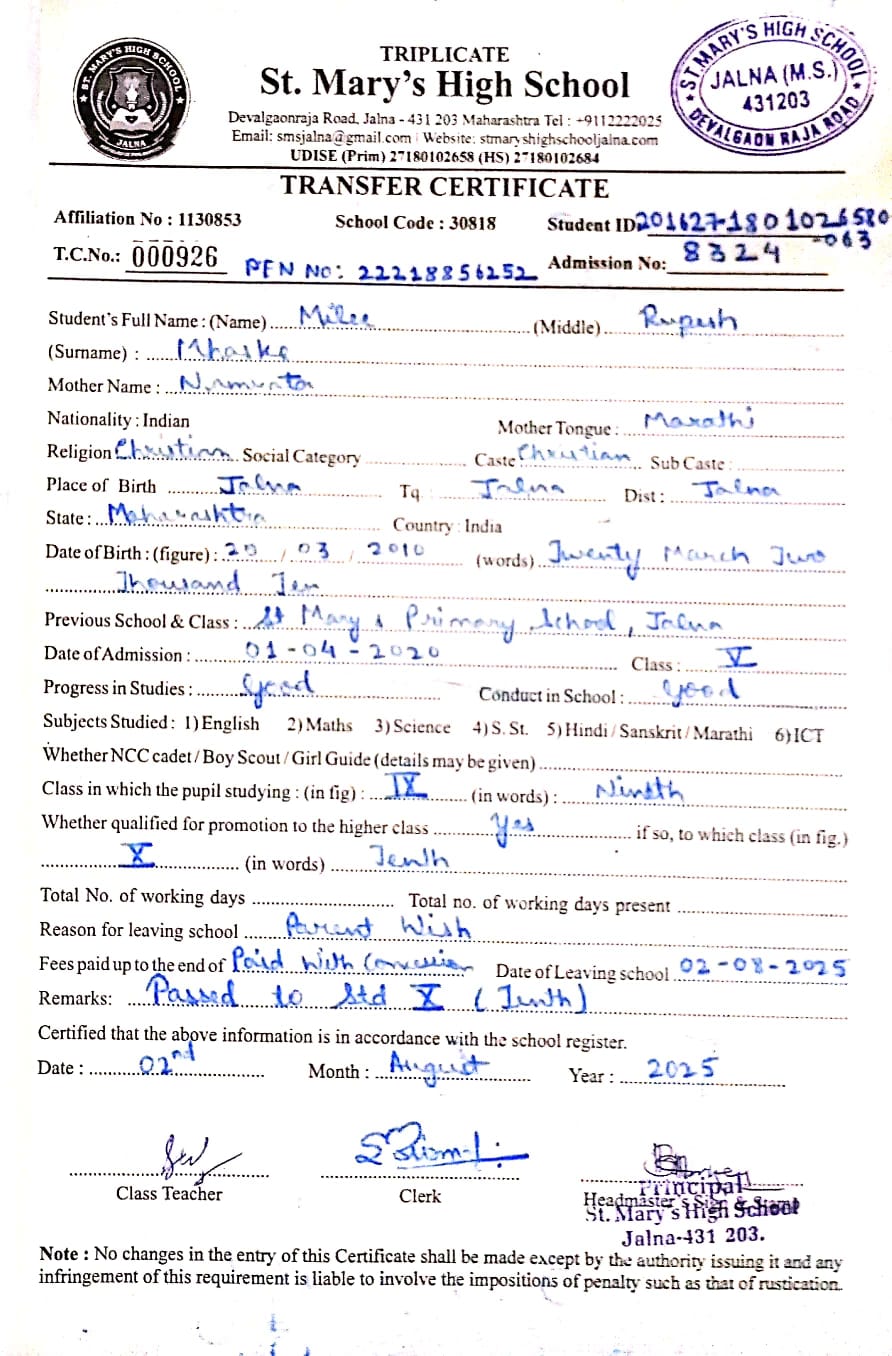 TRIPLICATE
St. Mary's High School
Devalgaonraja Road, Jalna - 431 203 Maharashtra Tel : +9112222025
Email: smsjalna@gmail.com | Website: stmaryshighschooljalna.com
UDISE (Prim) 27180102658 (HS) 27180102684
★ ST. MARY'S HIGH SCHOOL ★
JALNA
ST MARY'S HIGH SCHOOL
JALNA (M.S.)
431203
DEVALGAON RAJA ROAD
TRANSFER CERTIFICATE
Affiliation No : 1130853 School Code : 30818 Student ID 201627-1801026580
-063
T.C.No.: 000926 PEN NO: 22218856252 Admission No: 8324
Student's Full Name : (Name) Milee (Middle) Rupesh
(Surname) : Mhaske
Mother Name :
Nationality : Indian Mother Tongue : Marathi
Religion Christian Social Category Caste Christian Sub Caste :
Place of Birth Jalna Tq Jalna Dist : Jalna
State : Maharashtra Country : India
Date of Birth : (figure) : 20 / 03 / 2010 (words) Twenty March Two
Thousand Ten
Previous School & Class : St Mary s Primary School, Jalna
Date of Admission : 01-04-2020 Class : V
Progress in Studies : Good Conduct in School : Good
Subjects Studied : 1) English 2) Maths 3) Science 4) S. St. 5) Hindi / Sanskrit / Marathi 6) ICT
Whether NCC cadet / Boy Scout / Girl Guide (details may be given)
Class in which the pupil studying : (in fig) : IX (in words) : Nineth
Whether qualified for promotion to the higher class Yes if so, to which class (in fig.)
X (in words) Tenth
Total No. of working days Total no. of working days present
Reason for leaving school Parent Wish
Fees paid up to the end of Paid With Concession Date of Leaving school 02-08-2025
Remarks: Passed to Std X (Tenth)
Certified that the above information is in accordance with the school register.
Date : 02nd Month : August Year : 2025
Class Teacher Clerk Headmaster's Sign &
Principal
St. Mary's High School
Jalna-431 203.
Note : No changes in the entry of this Certificate shall be made except by the authority issuing it and any
infringement of this requirement is liable to involve the impositions of penalty such as that of rustication.